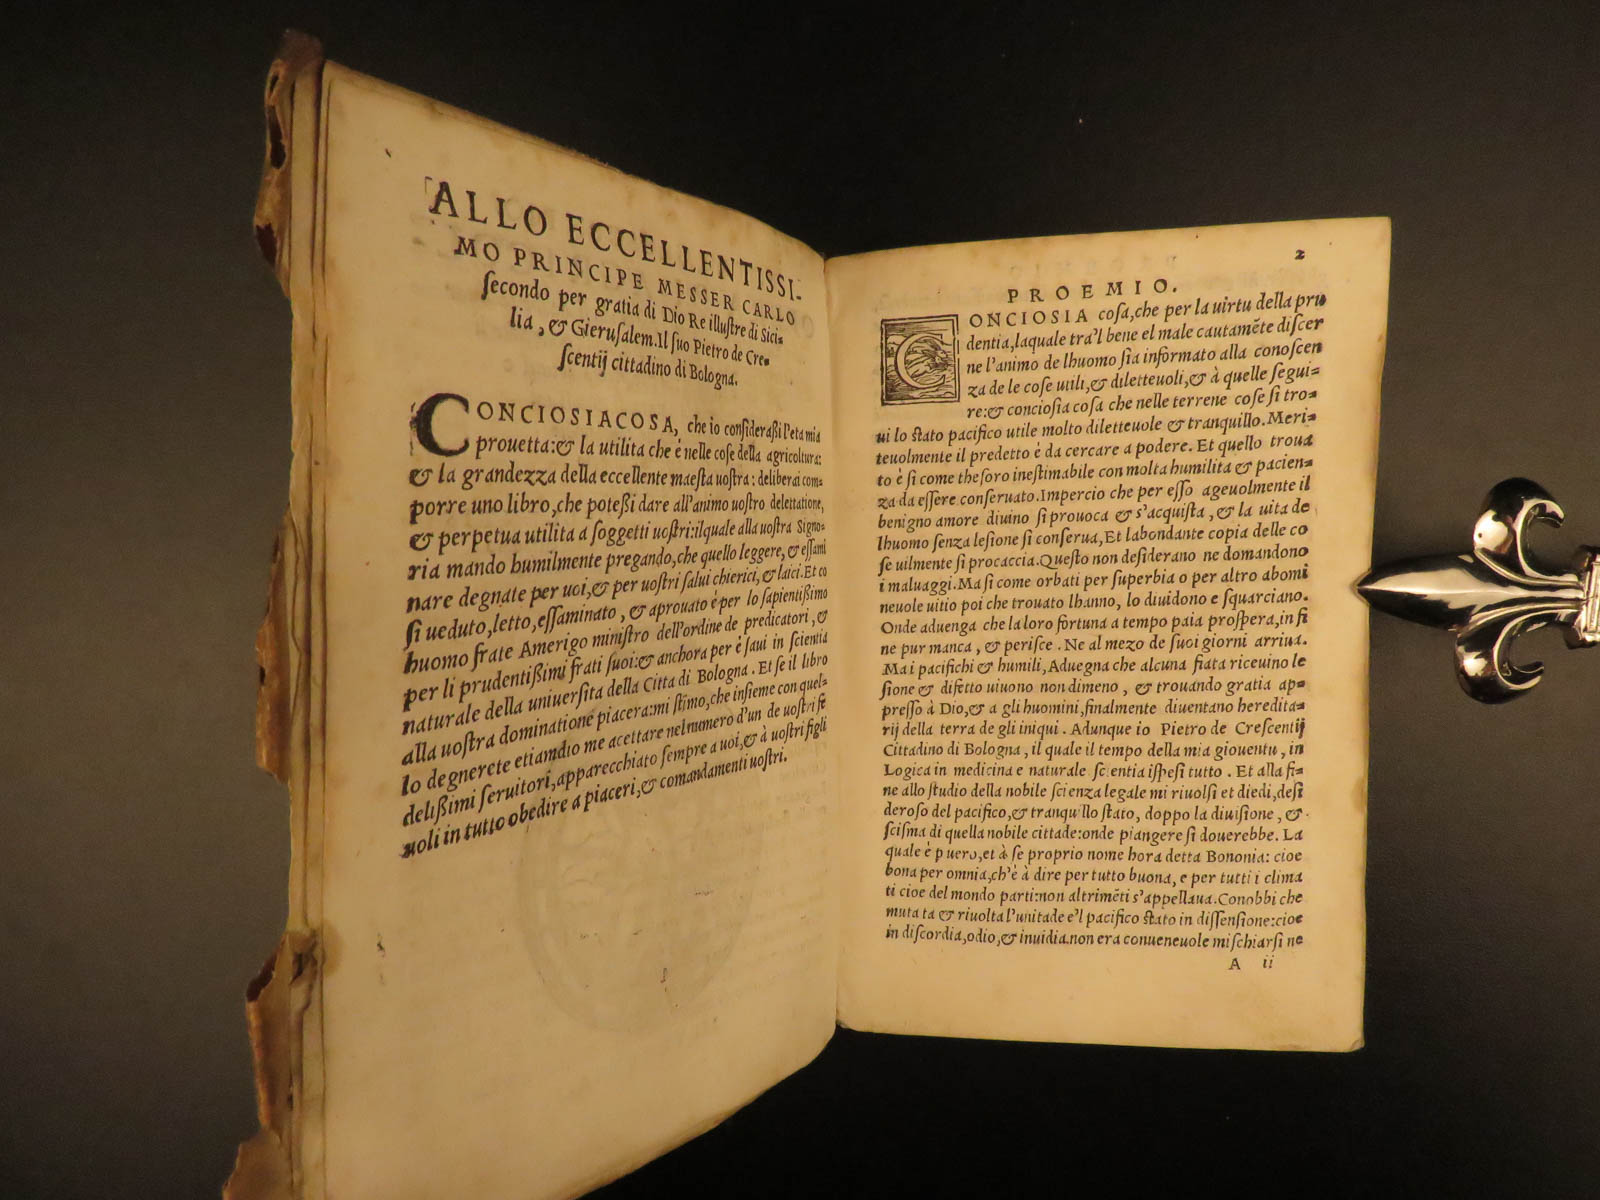 ALLO ECCELLENTISSI-
MO PRINCIPE MESSER CARLO
ſecondo per gratia di Dio Re illuſtre di Sici-
lia, & Gieruſalem. Il ſuo Pietro de Cre-
ſcentij cittadino di Bologna.
CONCIOSIACOSA, che io conſideraſſi l'eta mia
prouetta: & la utilita che è nelle coſe della agricoltura:
& la grandezza della eccellente maeſta uoſtra: deliberai com-
porre uno libro, che poteſſi dare all'animo uoſtro delettatione,
& perpetua utilita a ſoggetti uoſtri: ilquale alla uoſtra Signo-
ria mando humilmente pregando, che quello leggere, & eſſami
nare degnate per uoi, & per uoſtri ſalui chierici, & laici. Et co
ſi ueduto, letto, eſſaminato, & aprouato è per lo ſapientiſſimo
huomo frate Amerigo miniſtro dell'ordine de predicatori, &
per li prudentiſſimi frati ſuoi: & anchora per è ſaui in ſcientia
naturale della uniuerſita della Citta di Bologna. Et ſe il libro
alla uoſtra dominatione piacera: mi ſtimo, che inſieme con quel-
lo degnerete ettiamdio me acettare nel numero d'un de uoſtri fe
deliſſimi ſeruitori, apparecchiato ſempre a uoi, & à uoſtri figli
uoli in tutto obedire a piaceri, & comandamenti uoſtri.
2
PROEMIO.
CONCIOSIA coſa, che per la uirtu della pru
dentia, laquale tra'l bene el male cautamẽte diſcer
ne l'animo de lhuomo ſia informato alla conoſcen
za de le coſe utili, & diletteuoli, & à quelle ſegui-
re: & conciosia coſa che nelle terrene coſe ſi tro-
ui lo ſtato pacifico utile molto diletteuole & tranquillo. Meri-
teuolmente il predetto è da cercare a podere. Et quello troua
to è ſi come theſoro ineſtimabile con molta humilita & pacien-
za da eſſere conſeruato. Impercio che per eſſo ageuolmente il
benigno amore diuino ſi prouoca & s'acquiſta, & la uita de
lhuomo ſenza leſione ſi conſerua, Et labondante copia delle co
ſe uilmente ſi procaccia. Queſto non deſiderano ne domandono
i maluaggi. Ma ſi come orbati per ſuperbia o per altro abomi
neuole uitio poi che trouato lhanno, lo diuidono e ſquarciano.
Onde aduenga che la loro fortuna a tempo paia proſpera, in fi
ne pur manca, & periſce. Ne al mezo de ſuoi giorni arriua.
Mai pacifichi & humili, Aduegna che alcuna fiata riceuino le
ſione & difetto uiuono non dimeno, & trouando gratia ap-
preſſo à Dio, & a gli huomini, finalmente diuentano heredita-
rij della terra de gli iniqui. Adunque io Pietro de Creſcentij
Cittadino di Bologna, il quale il tempo della mia giouentu, in
Logica in medicina e naturale ſcientia iſpeſi tutto. Et alla fi-
ne allo ſtudio della nobile ſcienza legale mi riuolſi et diedi, deſi
deroſo del pacifico, & tranquillo ſtato, doppo la diuiſione, &
ſciſma di quella nobile cittade: onde piangere ſi douerebbe. La
quale è p uero, et à ſe proprio nome hora detta Bononia: cioe
bona per omnia, ch'è à dire per tutto buona, e per tutti i clima
ti cioe del mondo parti: non altrimẽti s'appellaua. Conobbi che
muta ta & riuolta l'unitade e'l pacifico ſtato in diſſenſione: cioe
in diſcordia, odio, & inuidia. non era conueneuole miſchiarſi ne
A ii